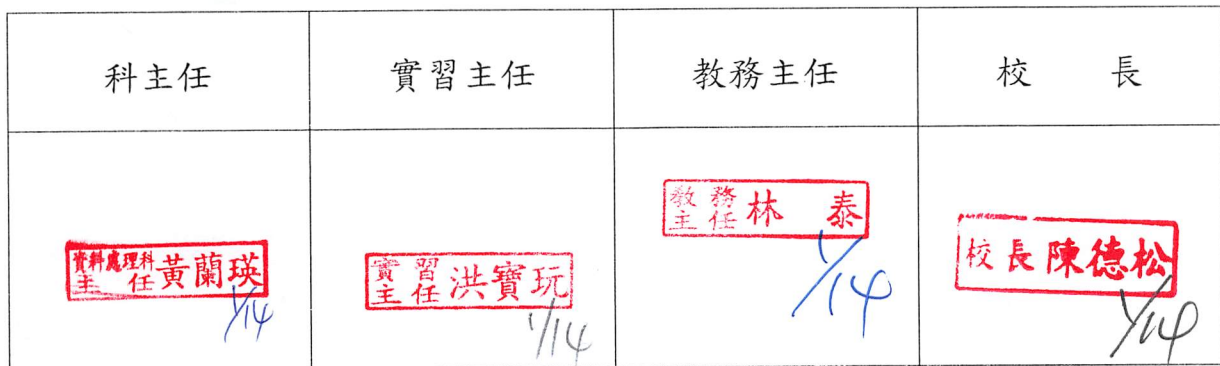 科主任
實習主任
教務主任
校 長
資料處理科
主 任 黃蘭瑛
1/14
實 習
主 任 洪寶玩
1/14
教 務
主 任 林 泰
1/14
校長 陳德松
1/14